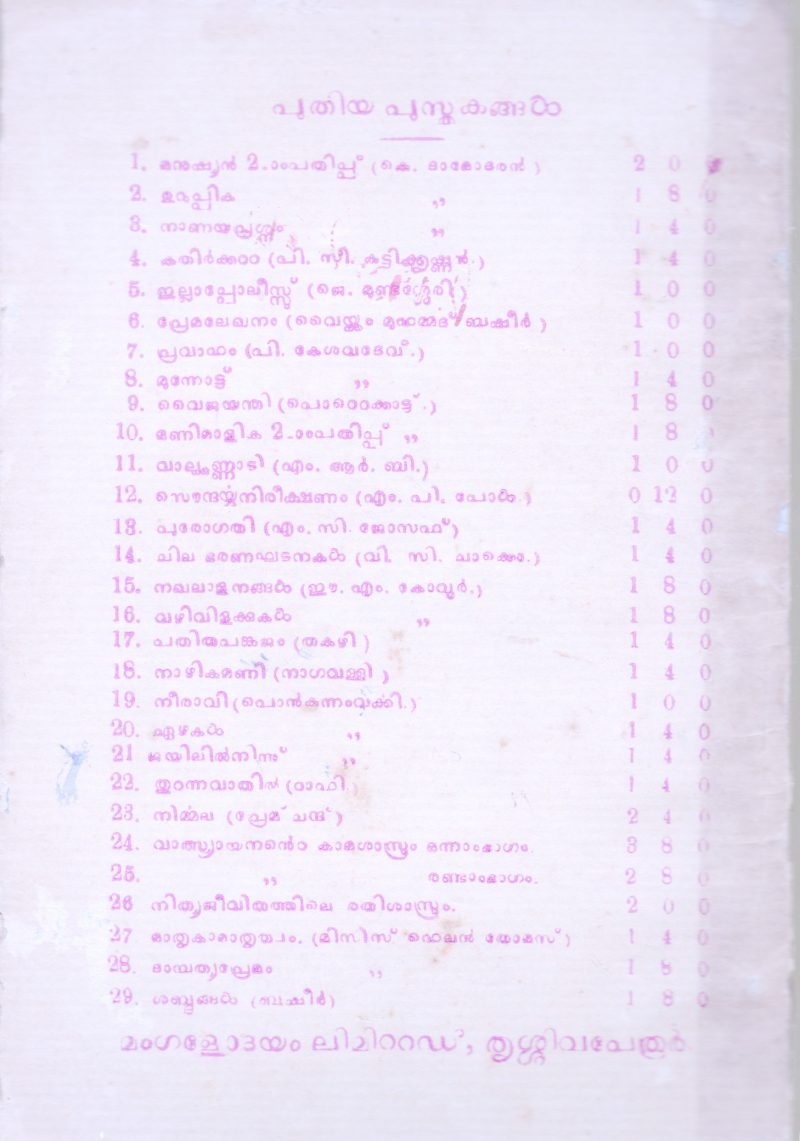 പുതിയ പുസ്തകങ്ങൾ
1. മനുഷ്യൻ 2-ാംപതിപ്പ് (കെ. ദാമോദരൻ) 2 0 0
2. ,, 1 8 0
3. നാണയപ്രശ്നം ,, 1 4 0
4. കതിർക്കറ്റ (പി. സി. കുട്ടികൃഷ്ണൻ.) 1 4 0
5. ഇല്ലാപ്പോലീസ്സ് (ജെ. മുണ്ടശ്ശേരി) 1 0 0
6. പ്രേമലേഖനം (വൈയ്ക്കം മുഹമ്മദ് ബഷീർ) 1 0 0
7. പ്രവാഹം (പി. കേശവദേവ്.) 1 0 0
8. മുന്നോട്ട് ,, 1 4 0
9. വൈജയന്തി (പൊറ്റെക്കാട്ട്.) 1 8 0
10. മണിമാളിക 2-ാംപതിപ്പ് ,, 1 8
11. വാല്ക്കണ്ണാടി (എം. ആർ. ബി.) 1 0 0
12. സൌന്ദര്യനിരീക്ഷണം (എം. പി. പോൾ.) 0 12 0
13. പുരോഗതി (എം. സി. ജോസഫ്) 1 4 0
14. ചില ഭരണഘടനകൾ (വി. സി. ചാക്കൊ.) 1 4 0
15. നഖലാളനങ്ങൾ (ഈ. എം. കോവൂർ.) 1 8 0
16. വഴിവിളക്കുകൾ ,, 1 8 0
17. പതിതപങ്കജം (തകഴി) 1 4 0
18. നാഴികമണി (നാഗവള്ളി) 1 4 0
19. നീരാവി (പൊൻകുന്നംവക്കി.) 1 0 0
20. ഏഴകൾ ,, 1 4 0
21 ജയിലിൽനിന്ന് ,, 1 4 0
22. തുറന്നവാതിൽ (റാഫി) 1 4 0
23. നിർമ്മല (പ്രേമ് ചന്ദ്) 2 4 0
24. വാത്സ്യായനന്റെ കാമശാസ്ത്രം ഒന്നാംഭാഗം. 3 8 0
25. ,, രണ്ടാംഭാഗം. 2 8 0
26 നിത്യജീവിതത്തിലെ രതിശാസ്ത്രം. 2 0 0
27 മാതൃകാമാതൃത്വം. (മിസിസ് ഹെലൻ തോമസ്) 1 4 0
28. ദാമ്പത്യപ്രേമം ,, 1 8 0
29. ശബ്ദങ്ങൾ (ബഷീർ) 1 8 0
മംഗളോദയം ലിമിററഡ്, തൃശ്ശിവപേരൂർ